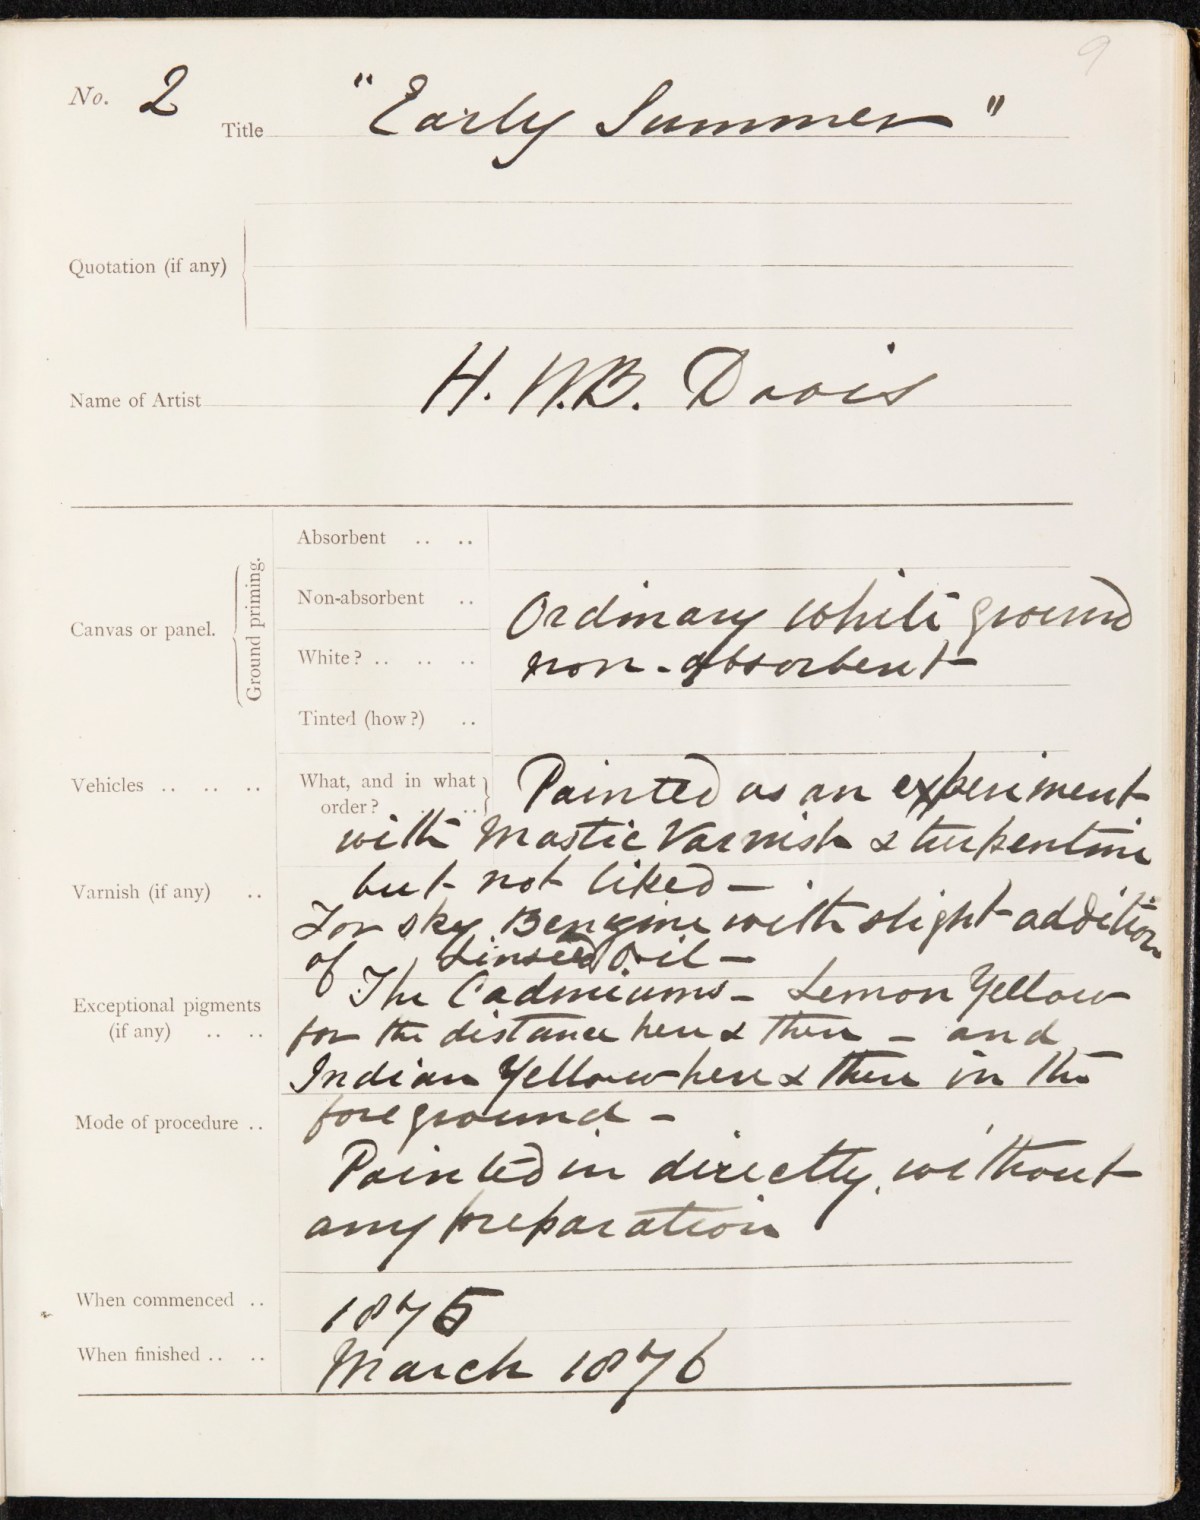 9
No. 2
Title "Early Summer"
Quotation (if any)
Name of Artist H. W.B. Davis
Canvas or panel.
Ground priming.
Absorbent .. ..
Non-absorbent ..
White? .. .. ..
Tinted (how?) ..
Ordinary white ground
non-absorbent
Vehicles .. .. ..
What, and in what
order? ..
Painted as an experiment
with Mastic Varnish & turpentine
Varnish (if any) ..
but not liked —
For sky Benzine with slight addition
of Linseed Oil —
Exceptional pigments
(if any) .. ..
The Cadmiums — Lemon Yellow
for the distance here & there — and
Indian Yellow here & there in the
foreground —
Mode of procedure ..
Painted in directly, without
any preparation
When commenced .. 1875
When finished .. .. March 1876